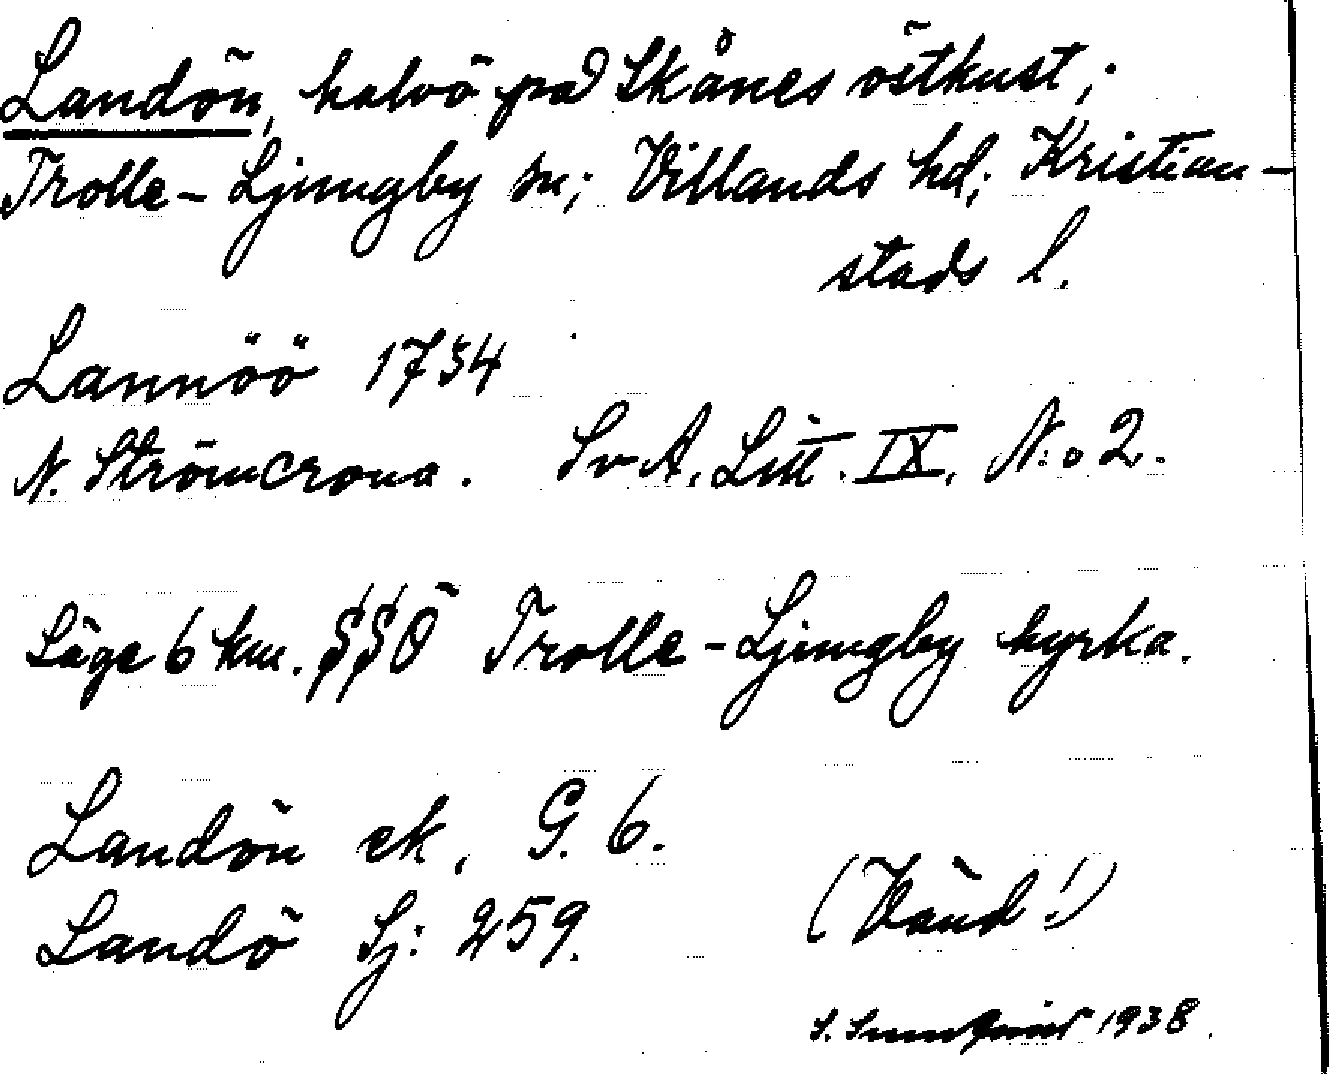 Landön, halvö på Skånes östkust;
Trolle-Ljungby sn; Villands hd; Kristian-
stads l.
Lannöö 1734
N. Strömcrona. SvA. Litt. IX. N:o 2.
Läge 6 km. SSÖ Trolle-Ljungby kyrka.
Landön ek, G. 6.
Landö Sj: 259.
(Vänd!)
S. 1938.